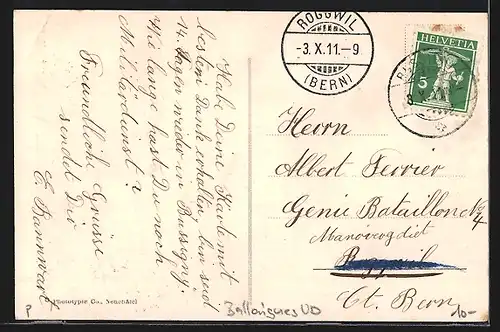 Habe Deine Karte mit
bestem Danke erhalten, bin seid
14. Tagen wieder in Bussigny
Wie lange hast Du noch
Militärdienst?
Freundliche Grüsse
sendet Dir
E. Bannwart
Phototypie Co., Neuchâtel
ROGGWIL
-3. X. 11.-9
(BERN)
HELVETIA
5
Herrn
Albert Perrier
Genie Bataillon No 4
Manövergebiet
Roggwil
Ct. Bern
Ballaigues VD
10-
P